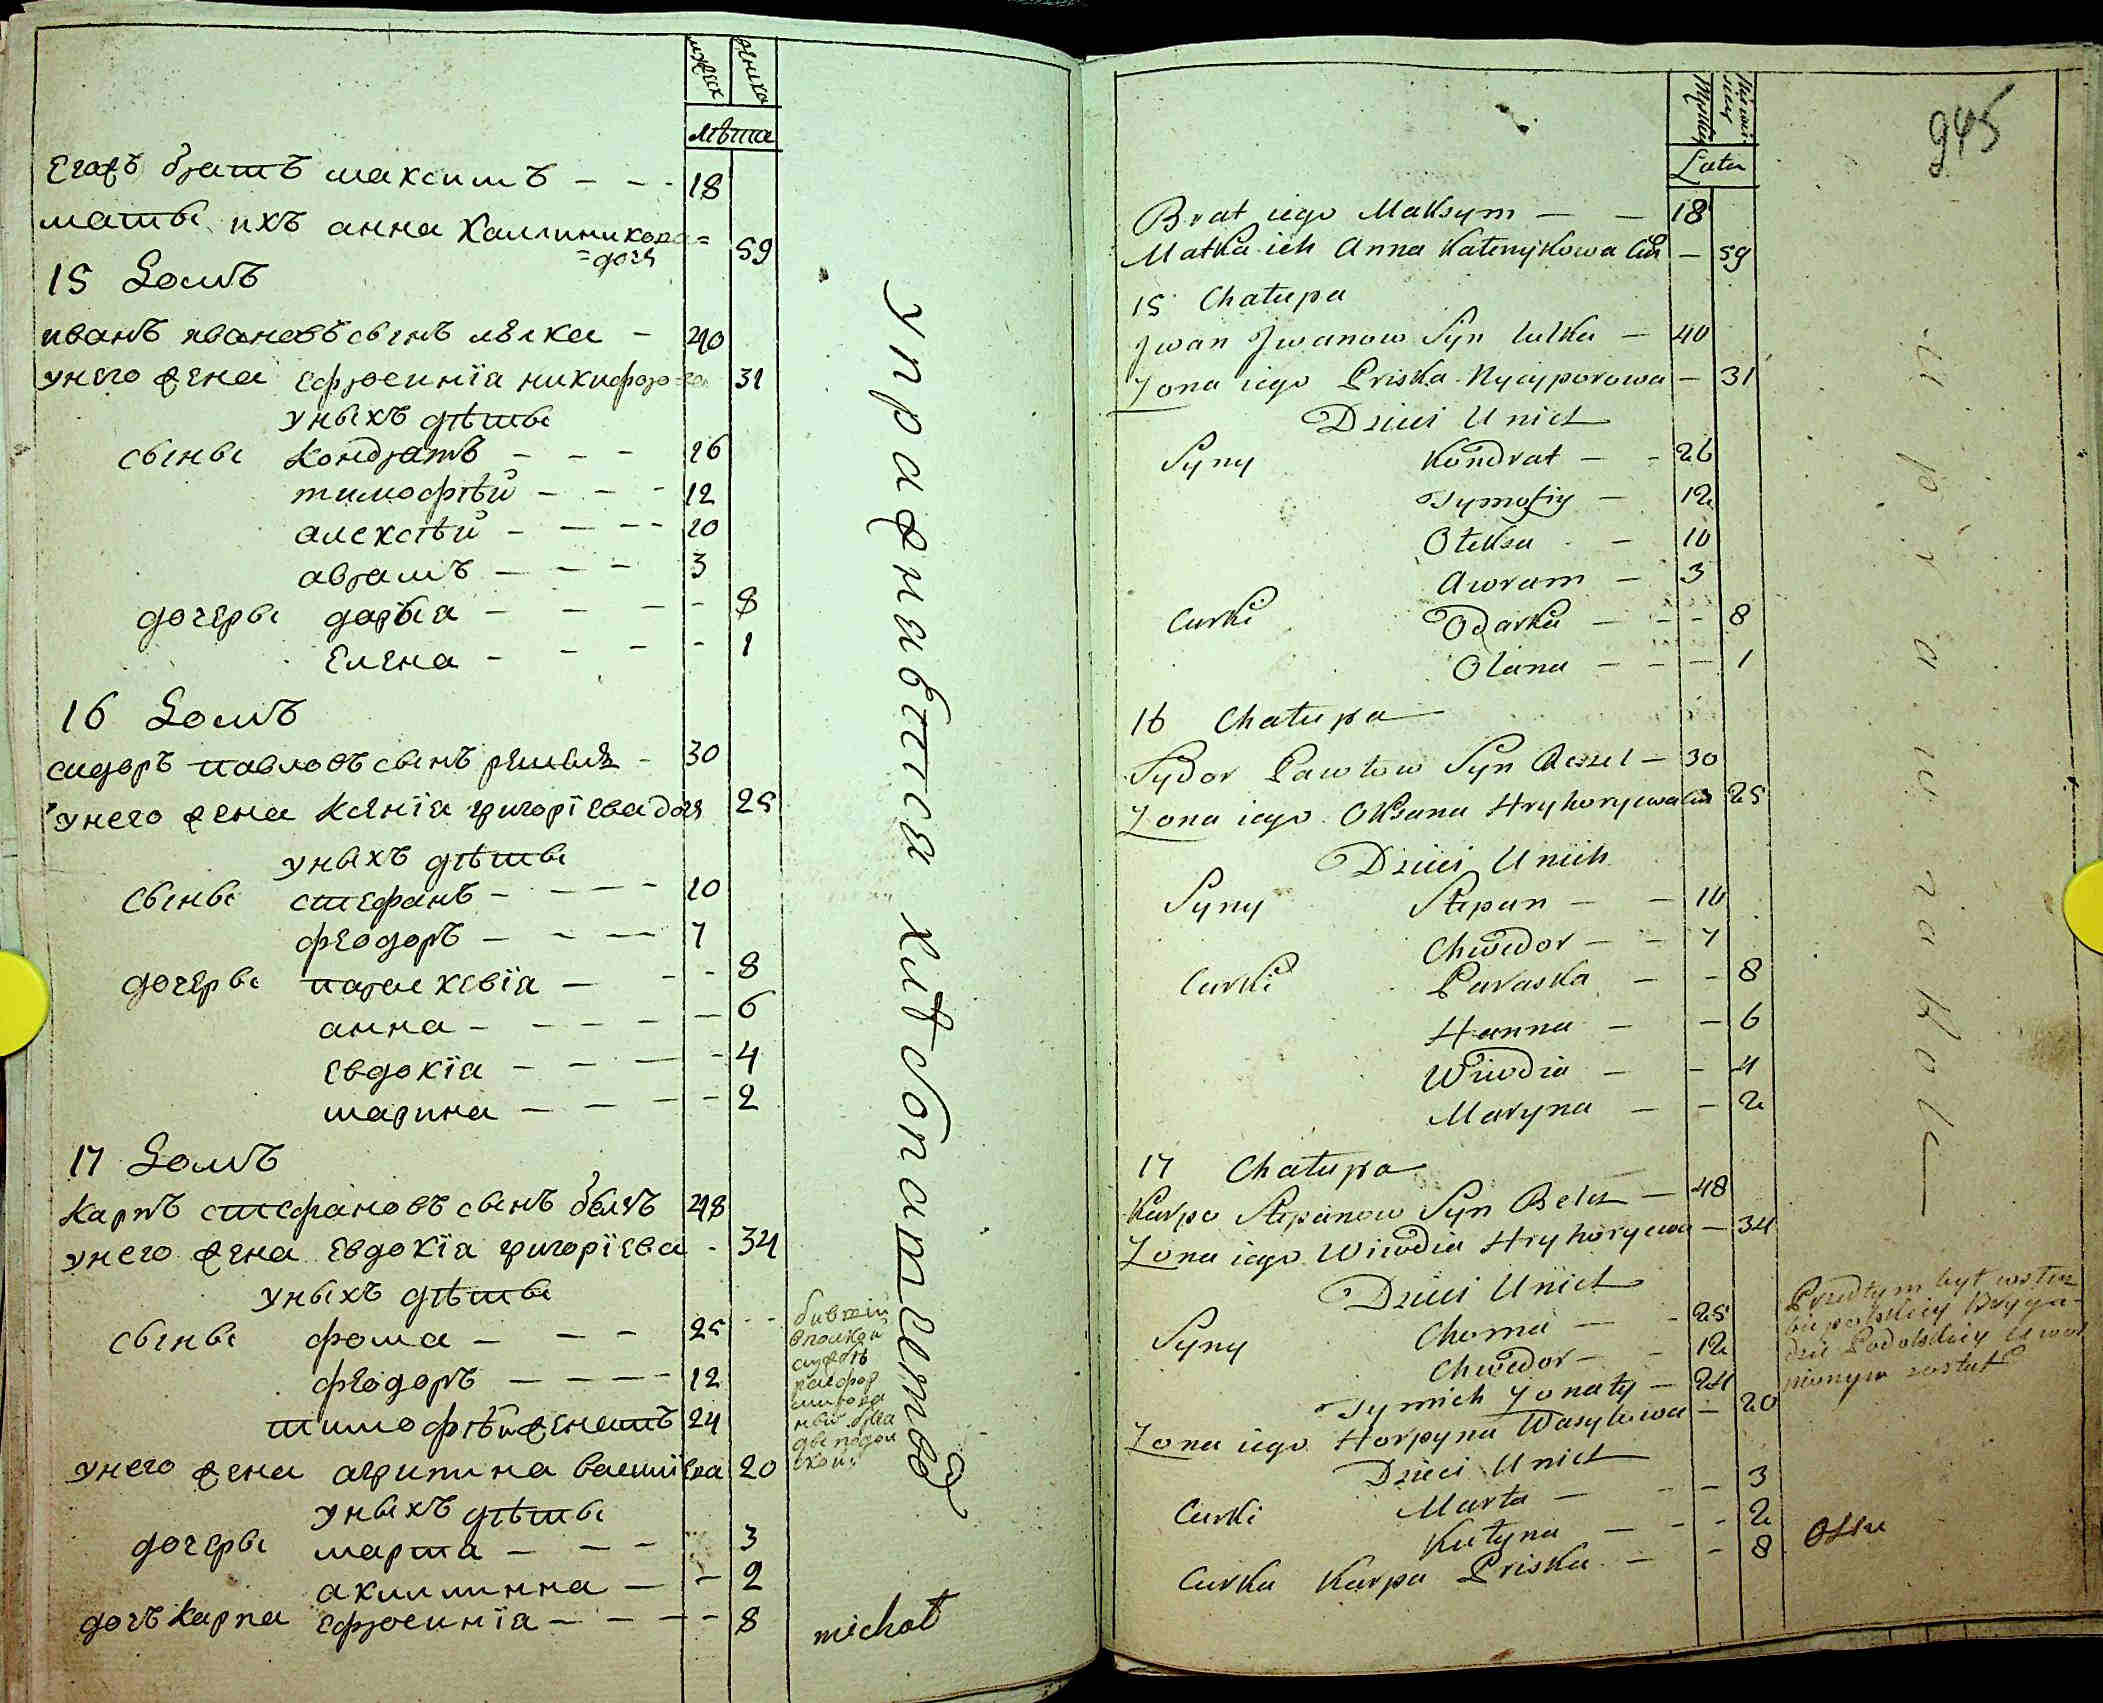 мужеск женска
лѣта
Егожъ братъ максимъ - - - 18
мать ихъ анна Каллиникова= 59
=дочь
15 Домъ
иванъ ивановъ сынъ люлка - 40
унего жена Ефросинїа никифоро=ва 31
уныхъ дѣты
сыны Кондратъ - - - 26
тимофѣй - - - 12
алексѣй - - - - 10
аврамъ - - - 3
дочеры дарыа - - - - 8
Елена - - - - 1
16 Домъ
сидоръ павловъ сынъ - 30
унего жена Ксенїа григорїева доч 25
уныхъ дѣты
сыны стефанъ - - - - 10
феодоръ - - - - 7
дочеры параскевїа - - - 8
анна - - - - - 6
Евдокїа - - - - 4
марина - - - - - 2
17 Домъ
Карпъ стефановъ сынъ 48
унего жена Евдокїа григорїева - 34
уныхъ дѣты
сыны фома - - - 25 - -
феодоръ - - - - 12
тимофѣй женатъ 24
унего жена агрипина василиева 20
уныхъ дѣты
дочеры марта - - - 3
акилинна - - 2
дочъ Карпа Ефросинїа - - - - 8
бившїй
вполской
службѣ
michał
945
Męska Żenska
Lata
Brat iego Maksym - - 18
Matka ich Anna Kalenykowa Cur - 59
15 Chałupa
Jwan Jwanow Syn Lulka - 40
Żona iego Priska Nycyporowa - 31
Dzieci Unich
Syny Kondrat - - 26
Tymofiy - 12
Oteksa - 10
Awram - 3
Curki Odarka - - - 8
Olana - - - 1
16 Chatupa
Sydor Pawłow Syn - 30
Żona iego Oksana Hryhorywa Cur 25
Dzieci Unich
Syny Stepan - - 10
Chwedor - - 7
Curki Paraska - - 8
Hanna - - 6
Wiwdia - - 4
Maryna - - 2
17 Chatupa
Karpo Stepanow Syn - 48
Żona iego Wiwdia Hryhorywa - 34
Dzieci Unich
Syny Choma - - 25
Chwedor - - 12
Tymich Żonaty - 24
Żona iego Horpyna Wasylowa - 20
Dzieci Unich
Curki Marta - - - 3
Kułyna - - - 2
Curka Karpa Priska - - 8
Przedtym był